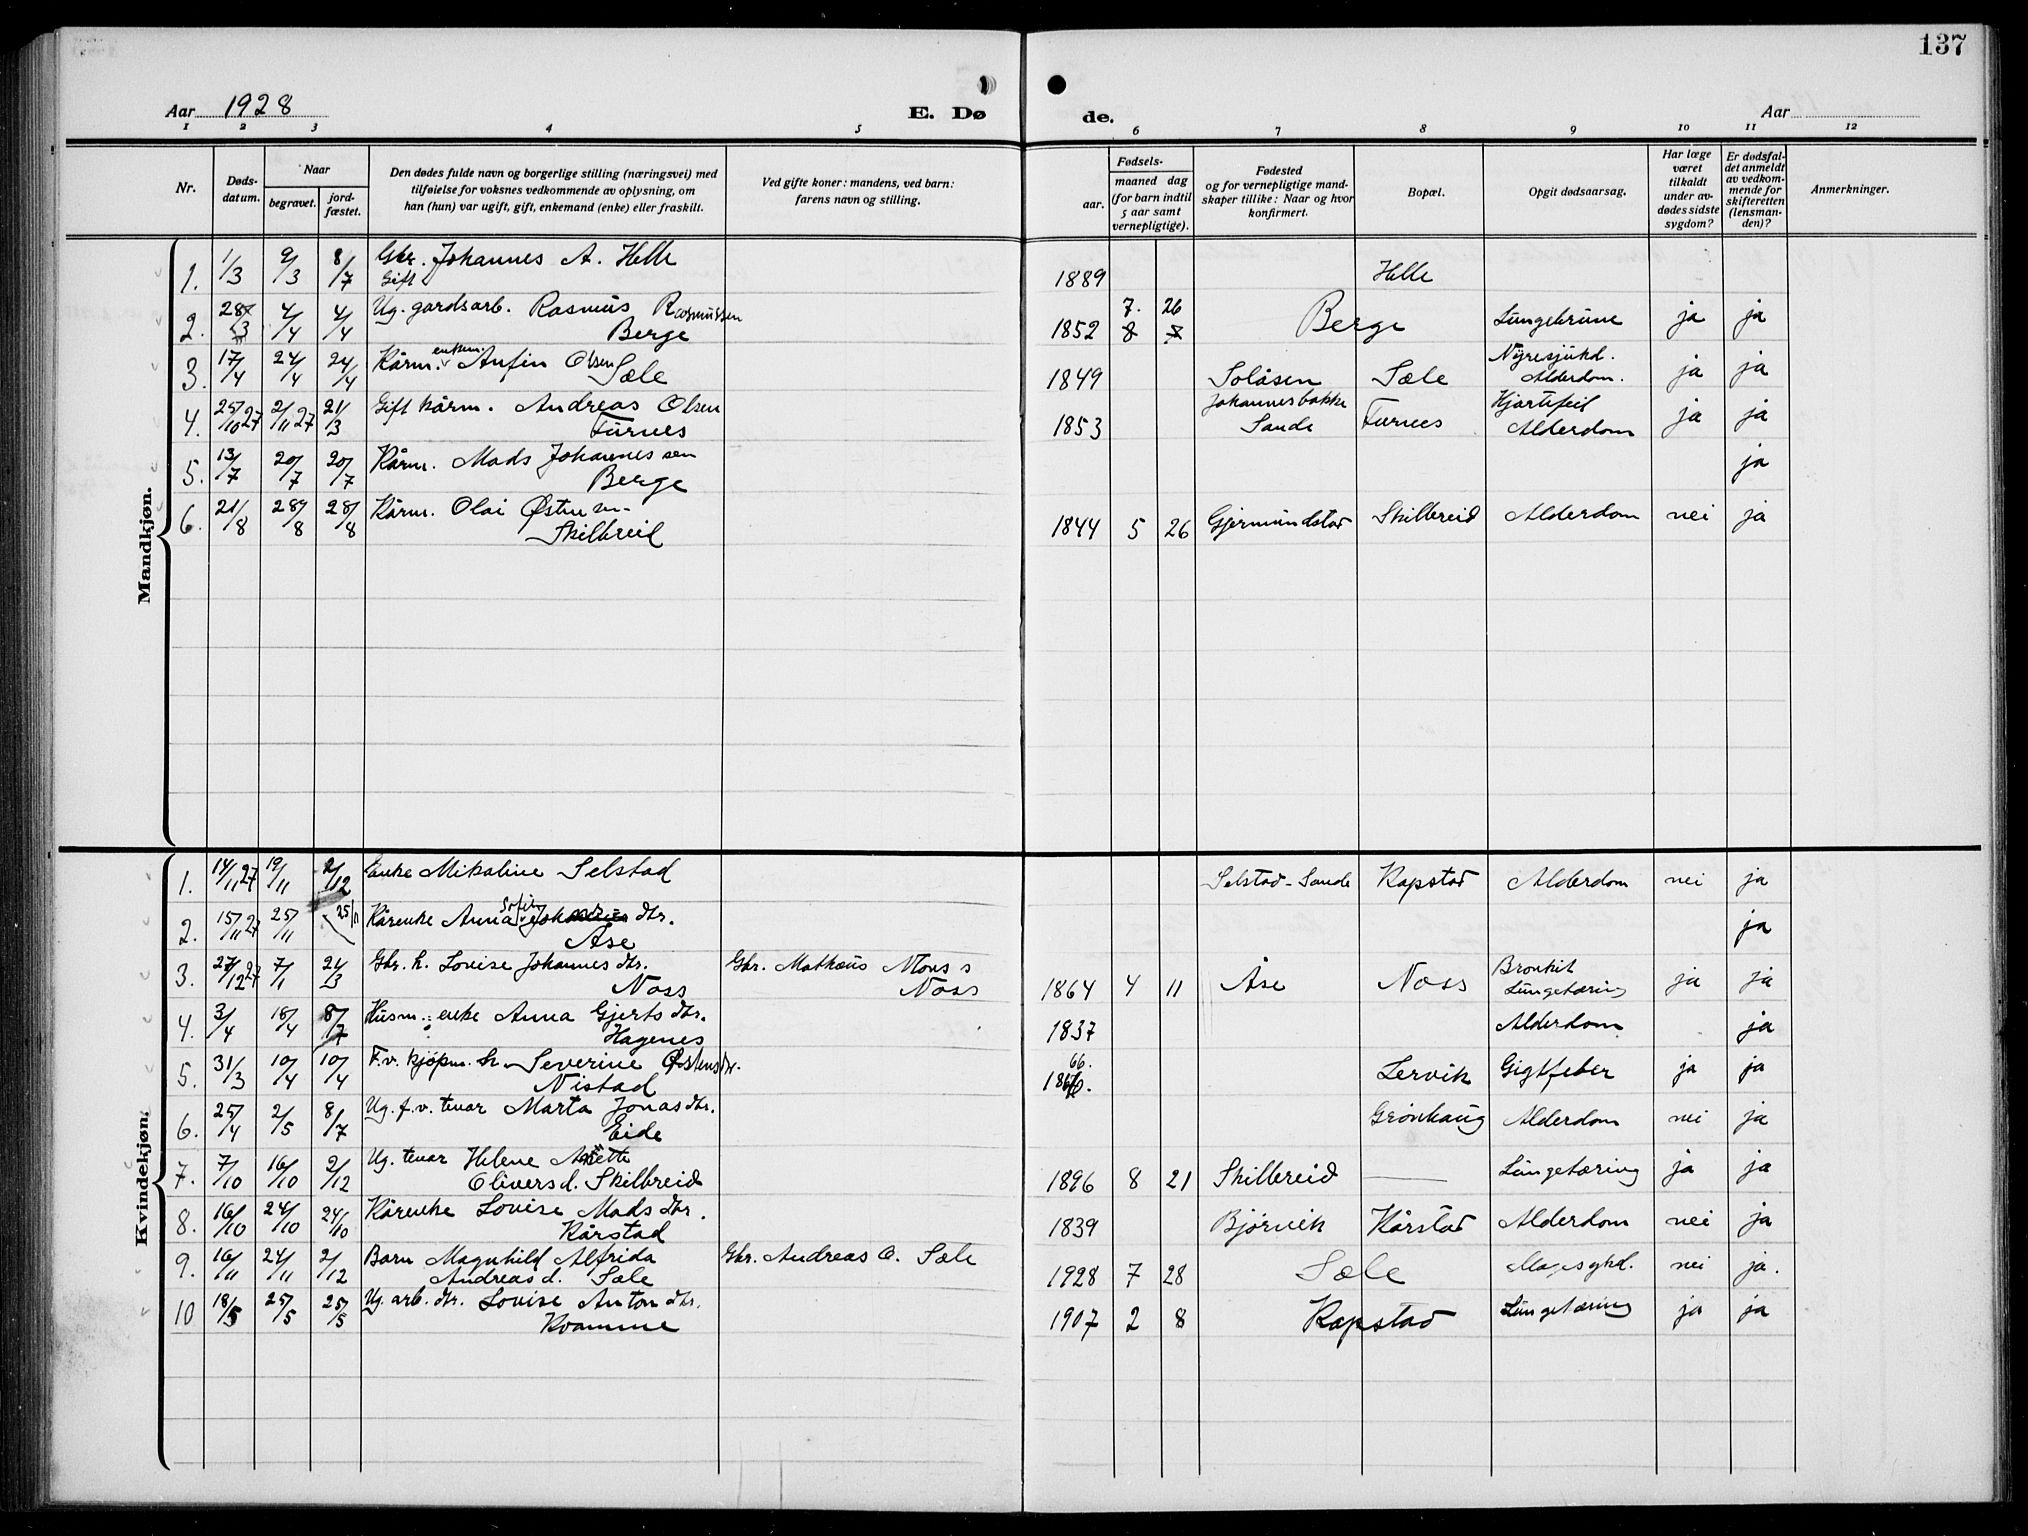 137
Aar 1928
E. Dø
de.
Aar
1 2 3 4 5
6 7 8 9 10 11 12
Nr.
Døds-
datum.
Naar
begravet.
jord-
fæstet.
Den dødes fulde navn og borgerlige stilling (næringsvei) med
tilføielse for voksnes vedkommende av oplysning, om
han (hun) var ugift, gift, enkemand (enke) eller fraskilt.
Ved gifte koner: mandens, ved barn:
farens navn og stilling.
Fødsels-
aar.
maaned dag
(for barn indtil
5 aar samt
vernepligtige).
Fødested
og for vernepligtige mand-
skaper tillike: Naar og hvor
konfirmert.
Bopæl.
Opgit dødsaarsag.
Har læge
været
tilkaldt
under av-
dødes sidste
sygdom?
Er dødsfal-
det anmeldt
av vedkom-
mende for
skifteretten
(lensman-
den)?
Anmerkninger.
Mandkjøn.
1. 1/3 9/3 8/7 Gbr. Johannes A. Helle 1889 Helle
Gift
2. 28/3 4/4 4/4 Ug. gardsarb. Rasmus Rasmussen 1852 7. 26 Berge Lungebrune ja ja
Berge 8
3. 17/4 24/4 24/4 Kårm. enkem. Anfin Olsen 1849 Solåsen Sæle Nyresjukd. ja ja
Sæle Alderdom.
4. 25/10 27 2/11 27 21/3 Gift kårm. Andreas Olsen 1853 Johannesbakke Furnes Hjartefeil ja ja
Furnes Sande Alderdom
5. 13/7 20/7 20/7 Kårm. Mads Johannessen ja
Berge
6. 21/8 28/8 28/8 Kårm. Olai Østensen 1844 5 26 Gjermundstad Skilbreid Alderdom nei ja
Skilbreid
Kvindekjøn.
1. 14/11 27 19/11 2/12 Enke Mikaline Selstad Selstad - Sande Rapstad Alderdom nei ja
2. 15/11 27 25/11 25/11 Kårenke Anna Sofie dtr. ja
Åse
3. 27/12 27 7/1 21/3 Gbr. h. Lovise Johannesdtr. Gbr. Mathæus Mons s 1864 4 11 Åse Noss Bronkit ja ja
Noss Noss Lungetæring
4. 3/4 18/4 8/7 Husm. enke Anna Gjertsdtr. 1837 Alderdom ja
Hagenes
5. 31/3 10/4 10/4 F.v. kjøpm. h. Severine Østensdtr. 66. Lervik Gigtfeber ja ja
Nistad
6. 25/4 2/5 8/7 Ug. f.v. tenar Marta Jonasdtr. Grønhaug Alderdom nei ja
Eide
7. 7/10 16/10 2/12 Ug. tenar Helene 1896 8 21 Skilbreid — Lungetæring ja ja
Oliversd. Skilbreid
8. 16/10 24/10 24/10 Kårenke Lovise Madsdtr. 1839 Bjørvik Kårstad Alderdom nei ja
Kårstad
9. 16/11 24/11 2/12 Barn Magnhild Alfrida Gbr. Andreas O. Sæle 1928 7 28 Sæle nei ja.
Andreasd. Sæle
10 18/5 25/5 25/5 Ug. arb. dtr. Lovise Antondtr. 1907 2 8 Rapstad Lungetæring ja ja
Kvamme